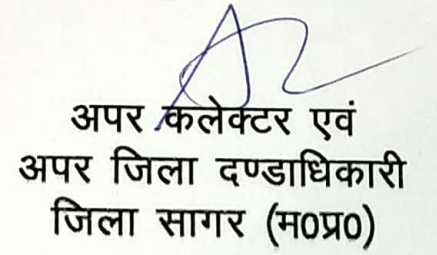 अपर कलेक्टर एवं
अपर जिला दण्डाधिकारी
जिला सागर (म0प्र0)